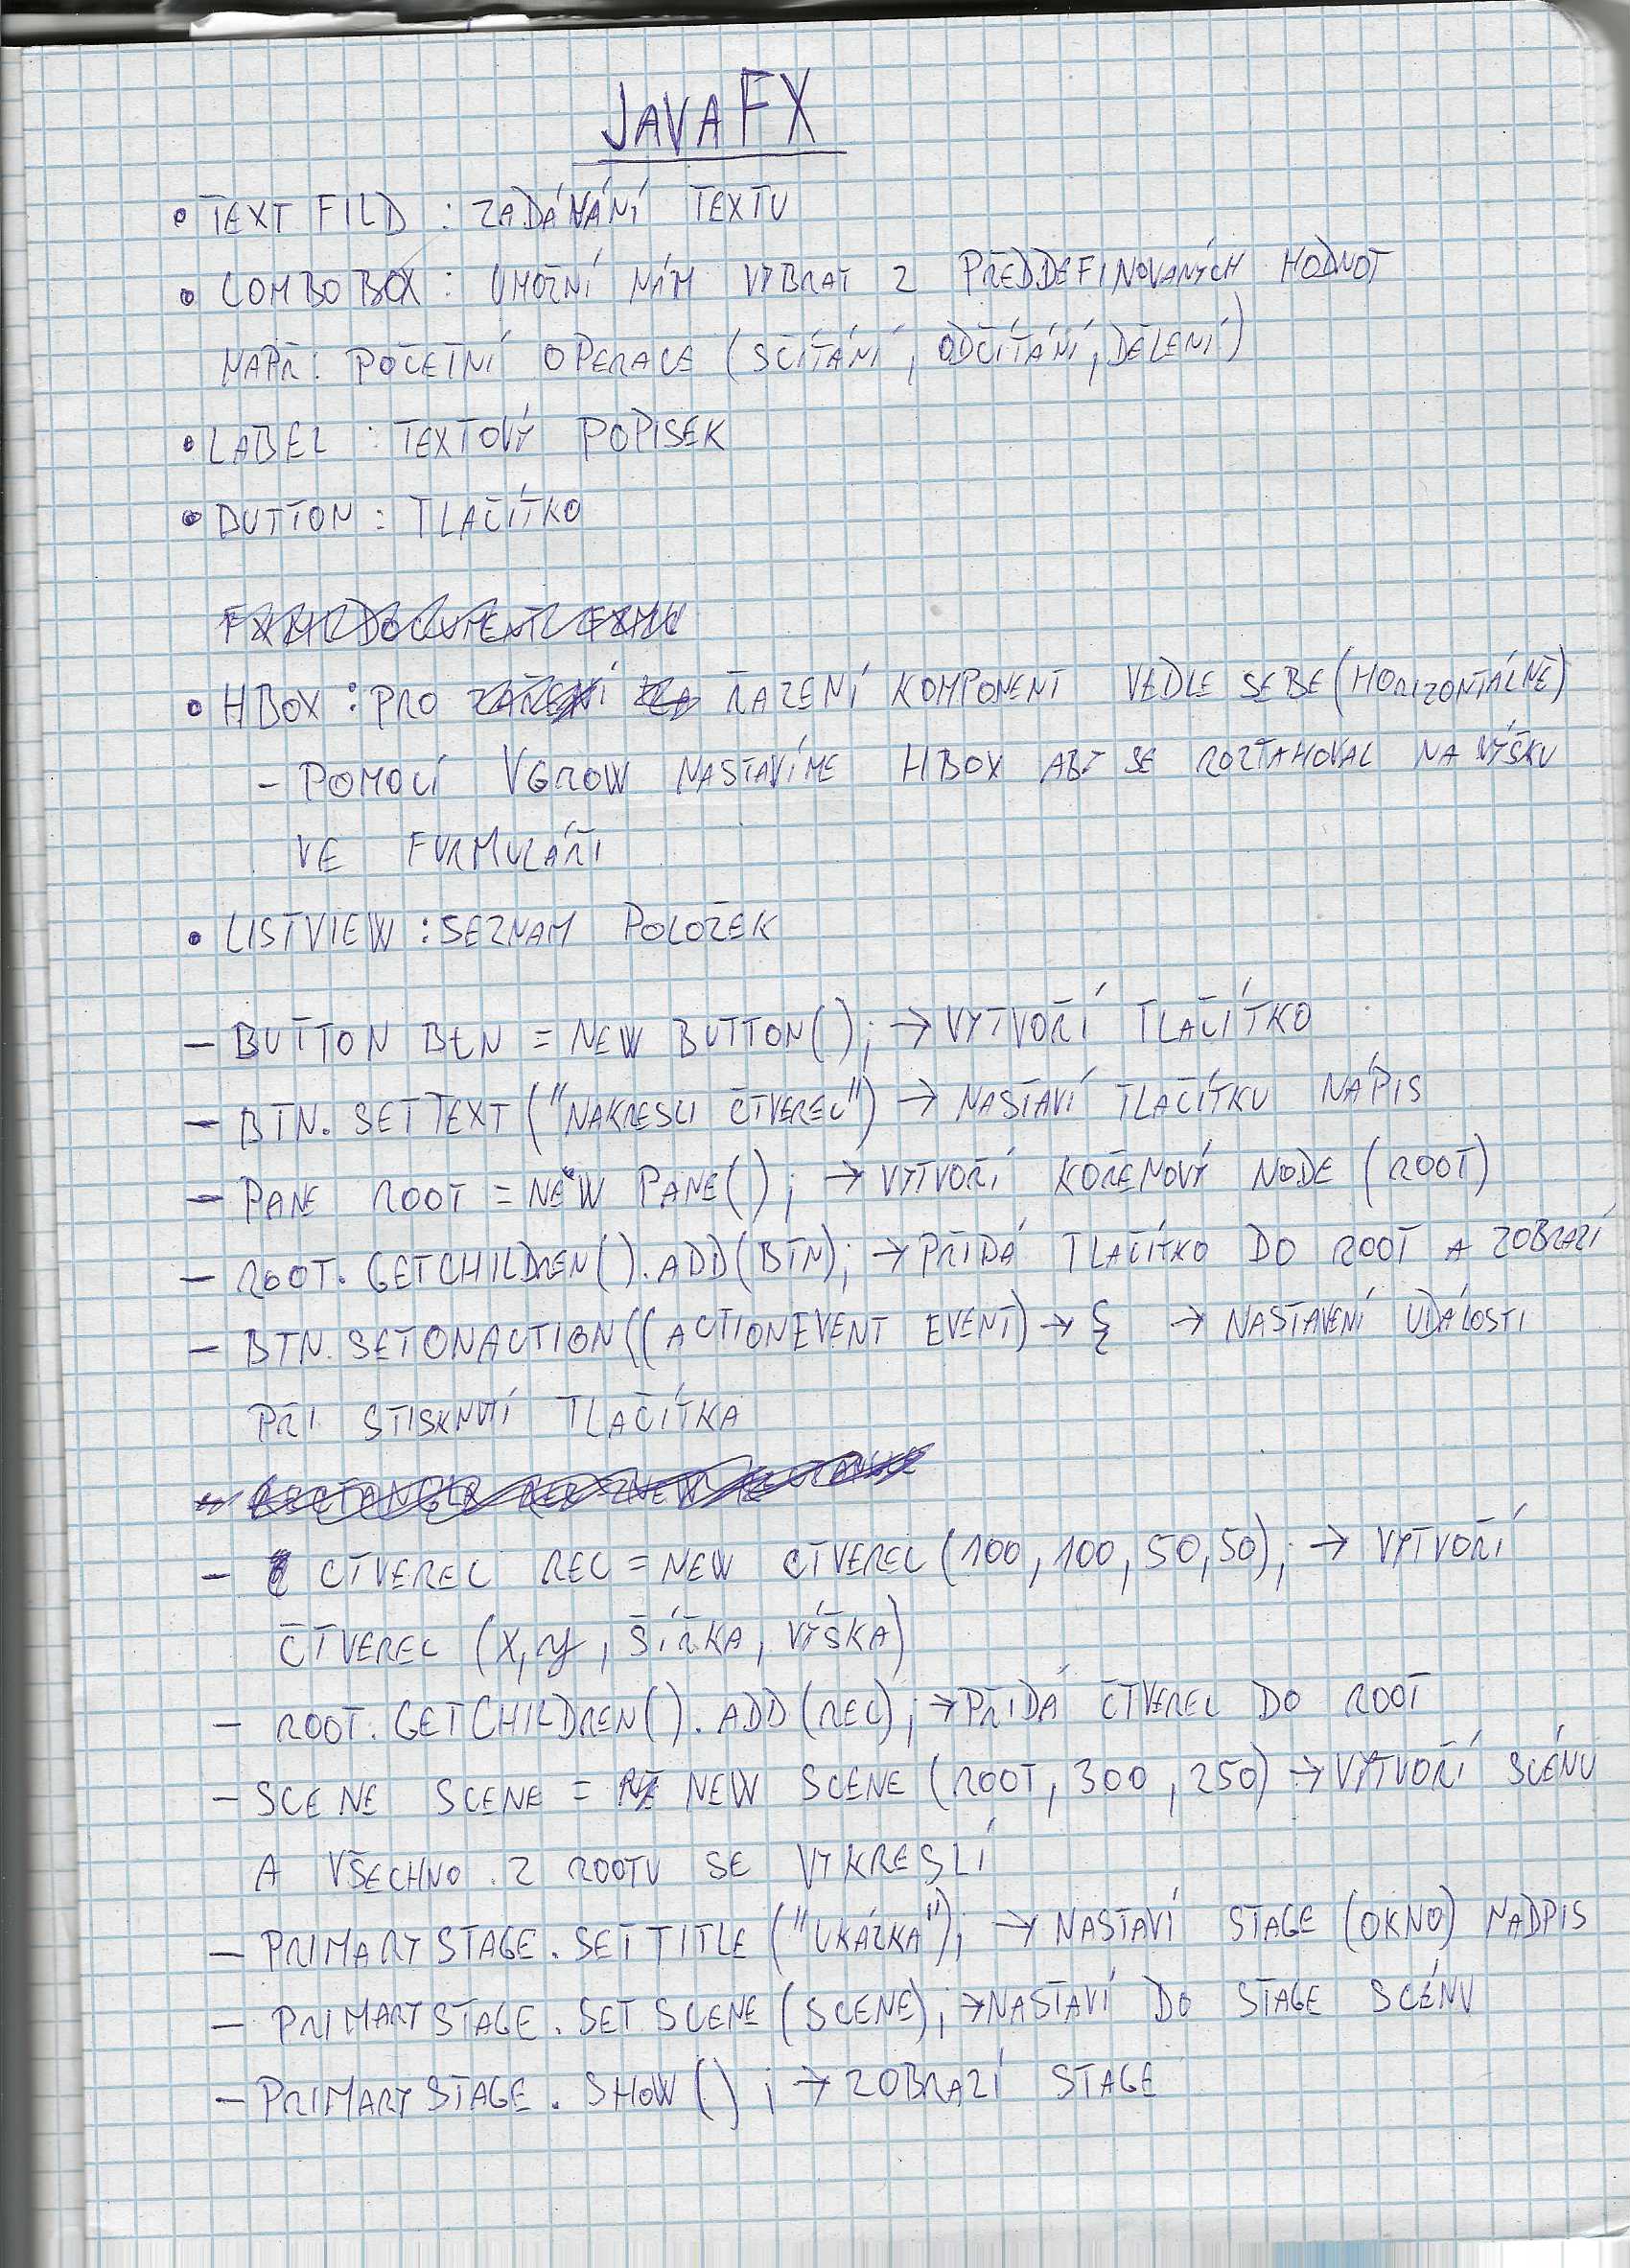 JAVAFX
• TEXT FILD : ZADÁVÁNÍ TEXTU
• COMBOBOX : UMOŽNÍ NÁM VYBRAT Z PŘEDDEFINOVANÝCH HODNOT
NAPŘ: POČETNÍ OPERACE (SČÍTÁNÍ, ODČÍTÁNÍ, DĚLENÍ)
• LABEL : TEXTOVÝ POPISEK
• BUTTON : TLAČÍTKO
• HBOX : PRO ŘAZENÍ KOMPONENT VEDLE SEBE (HORIZONTÁLNĚ)
- POMOCÍ VGROW NASTAVÍME HBOX ABY SE ROZTAHOVAL NA VÝŠKU
VE FORMULÁŘI
• LISTVIEW : SEZNAM POLOŽEK
- BUTTON BtN = NEW BUTTON(); → VYTVOŘÍ TLAČÍTKO
- BTN.SETTEXT("NAKRESLI ČTVEREC") → NASTAVÍ TLAČÍTKU NÁPIS
- PANE ROOT = NEW PANE(); → VYTVOŘÍ KOŘENOVÝ NODE (ROOT)
- ROOT.GETCHILDREN().ADD(BTN); → PŘIDÁ TLAČÍTKO DO ROOT A ZOBRAZÍ
- BTN.SETONACTION((ACTIONEVENT EVENT) → { → NASTAVENÍ UDÁLOSTI
PŘI STISKNUTÍ TLAČÍTKA
- CTVEREC REC = NEW CTVEREC(100, 100, 50, 50); → VYTVOŘÍ
ČTVEREC (X, y, ŠÍŘKA, VÝŠKA)
- ROOT.GETCHILDREN().ADD(REC); → PŘIDÁ ČTVEREC DO ROOT
- SCENE SCENE = NEW SCENE (ROOT, 300, 250) → VYTVOŘÍ SCÉNU
A VŠECHNO Z ROOTU SE VYKRESLÍ
- PRIMARYSTAGE.SETTITLE ("UKÁZKA"); → NASTAVÍ STAGE (OKNO) NADPIS
- PRIMARYSTAGE.SETSCENE (SCENE); → NASTAVÍ DO STAGE SCÉNU
- PRIMARYSTAGE.SHOW(); → ZOBRAZÍ STAGE